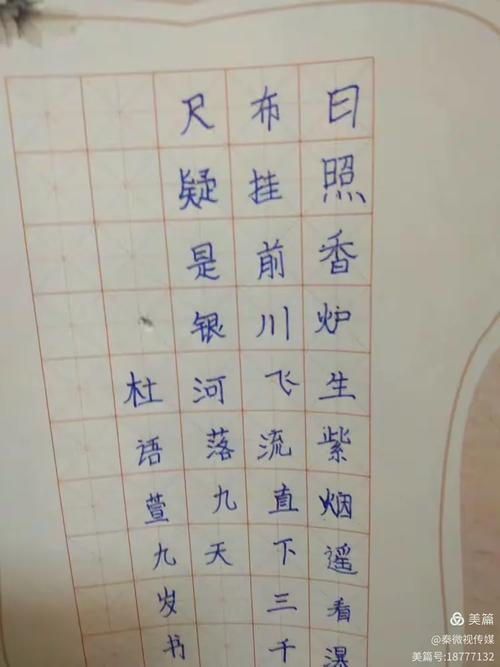 日照香炉生紫烟遥看瀑
布挂前川飞流直下三千
尺疑是银河落九天
杜语萱九岁书
美篇
@秦微视传媒
美篇号:18777132